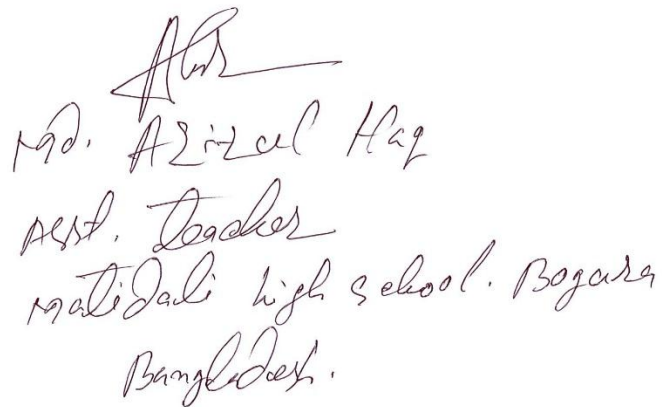 Md. Azizul Haq
Asst. Teacher
Matidali high school. Bogura
Bangladesh.